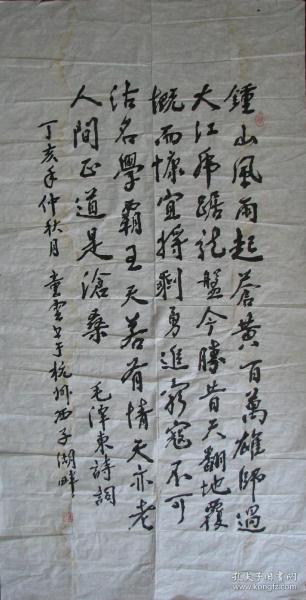 鍾山風雨起蒼黄百萬雄師過
大江虎踞龙盤今勝昔天翻地覆
慨而慷宜将剩勇追窮寇不可
沽名學霸王天若有情天亦老
人间正道是滄桑
毛澤東詩詞
丁亥年仲秋月 童雲 书于杭州西子湖畔
孔夫子旧书网